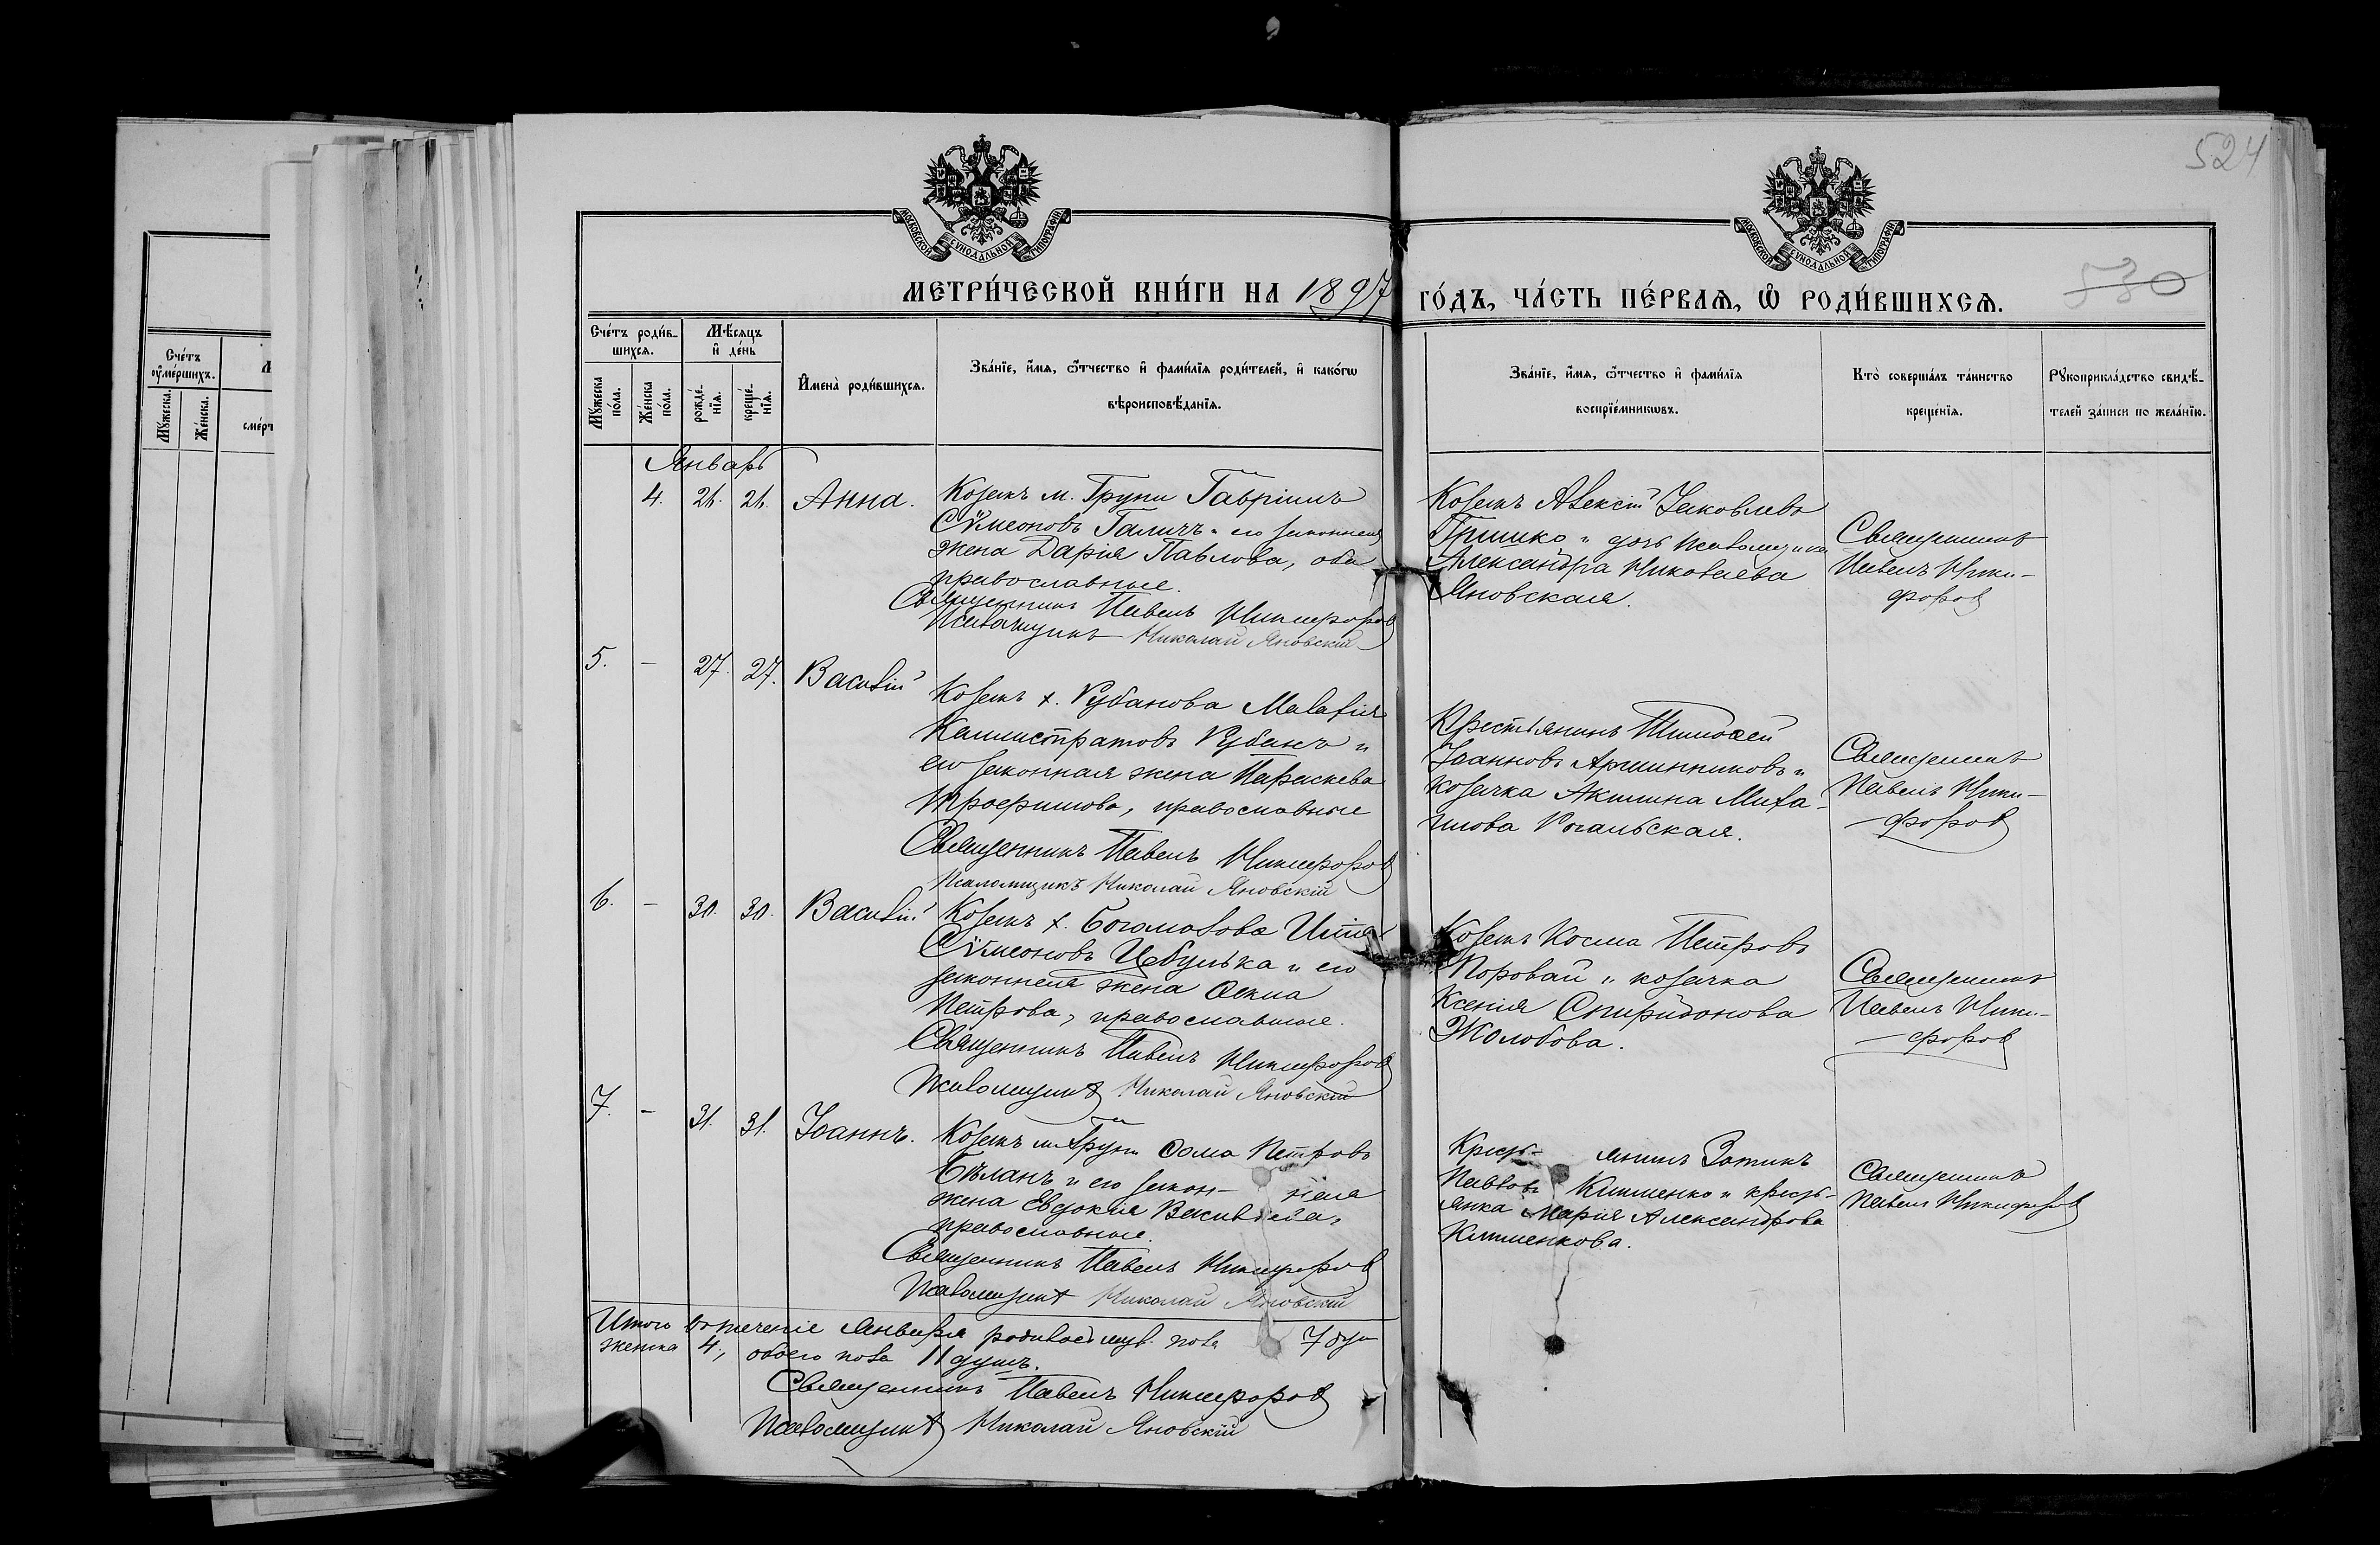 524
МОСКОВСКОЙ СѴНОДАЛЬНОЙ ТИПОГРАФІИ
МОСКОВСКОЙ СѴНОДАЛЬНОЙ ТИПОГРАФІИ
МЕТРИ́ЧЕСКОЙ КНИ́ГИ НА 1897 ГО́ДЪ, ЧА́СТЬ ПЕ́РВАѦ, Ѡ РОДИ́ВШИХСѦ.
530
Сче́тъ роди́в-
шихсѧ.
Мѣ́сяцъ
и де́нь
Сче́тъ
оумéршихъ.
Му́жеска.
Же́нска.
сме́рт
Му́жеска
по́ла.
Же́нска
по́ла.
рожде́-
нїѧ.
креще́-
нїѧ.
Имена̀ роди́вшихсѧ.
Зва́нїе, и́мѧ, ѻ҆́тчество и фами́лїѧ роди́телей, и како́гѡ
вѣроисповѣ́данїѧ.
Зва́нїе, и́мѧ, ѻ҆́тчество и фами́лїѧ
воспрїе́мникѡвъ.
Кто̀ соверша́лъ та́инство
креще́нїѧ.
Рꙋкоприкла́дство свидѣ́-
телей за́писи по жела́нїю.
Январь
4. 26. 26. Анна.
Козакъ м. Груни Гавріилъ
Сѵмеоновъ Галичъ и его законная
жена Дарія Павлова, оба
православные.
Священникъ Павелъ Никифоров
Псаломщикъ Николай Яновскій
Козакъ Алексій Іаковлевъ
Гришко и дочь псаломщика
Александра Николаева
Яновская.
Священникъ
Павелъ Ники-
форов
5. – 27. 27. Василій
Козакъ х. Рубанова Малахія
Каллистратовъ Рубанъ и
его законная жена Параскева
Трофимова, православные
Священникъ Павелъ Никифоров
Псаломщикъ Николай Яновскій
Крестьянинъ Тимоѳей
Іоанновъ Аршинниковъ и
козачка Акилина Миха-
илова Рогальская.
Священникъ
Павелъ Ники-
форов
6. – 30. 30. Василій
Козакъ х. Богомолова
Сѵмеоновъ Цебулька и его
законная жена Ѳекла
Петрова, православные.
Священникъ Павелъ Никифоров
Псаломщикъ Николай Яновскій
Козакъ Косма Петровъ
Поровай и козачка
Ксенія Спиридонова
Жолобова.
Священникъ
Павелъ Ники-
форов
7. – 31. 31. Іоаннъ.
Козакъ м. Груни Ѳома Петровъ
Бѣланъ и его закон- ная
жена Евдокія Васильева,
православные.
Священникъ Павелъ Никифоров
Псаломщикъ Николай Яновскій
Крест- янинъ Зотикъ
Павловъ Клименко и крест-
янка Марія Александрова
Клименкова.
Священникъ
Павелъ Никифоров
Итого въ теченіе января родилось муж. пола 7 душ
женска 4, обоего пола 11 душъ.
Священникъ Павелъ Никифоров
Псаломщикъ Николай Яновскій